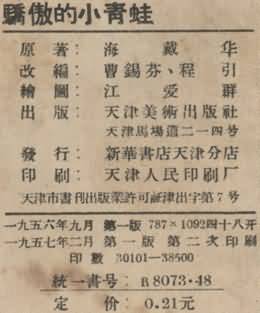 驕傲的小青蛙
原著：海戴华
改編：曹錫芬、程引
繪圖：江愛群
出版：天津美術出版社
天津馬場道二一四号
發行：新華書店天津分店
印刷：天津人民印刷厂
天津市書刊出版業許可証津出字第7号
一九五六年九月 第一版 787×1092四十八开
一九五七年二月 第一版 第二次印刷
印数 30101—38500
統一書号：R8073·48
定价：0.21元